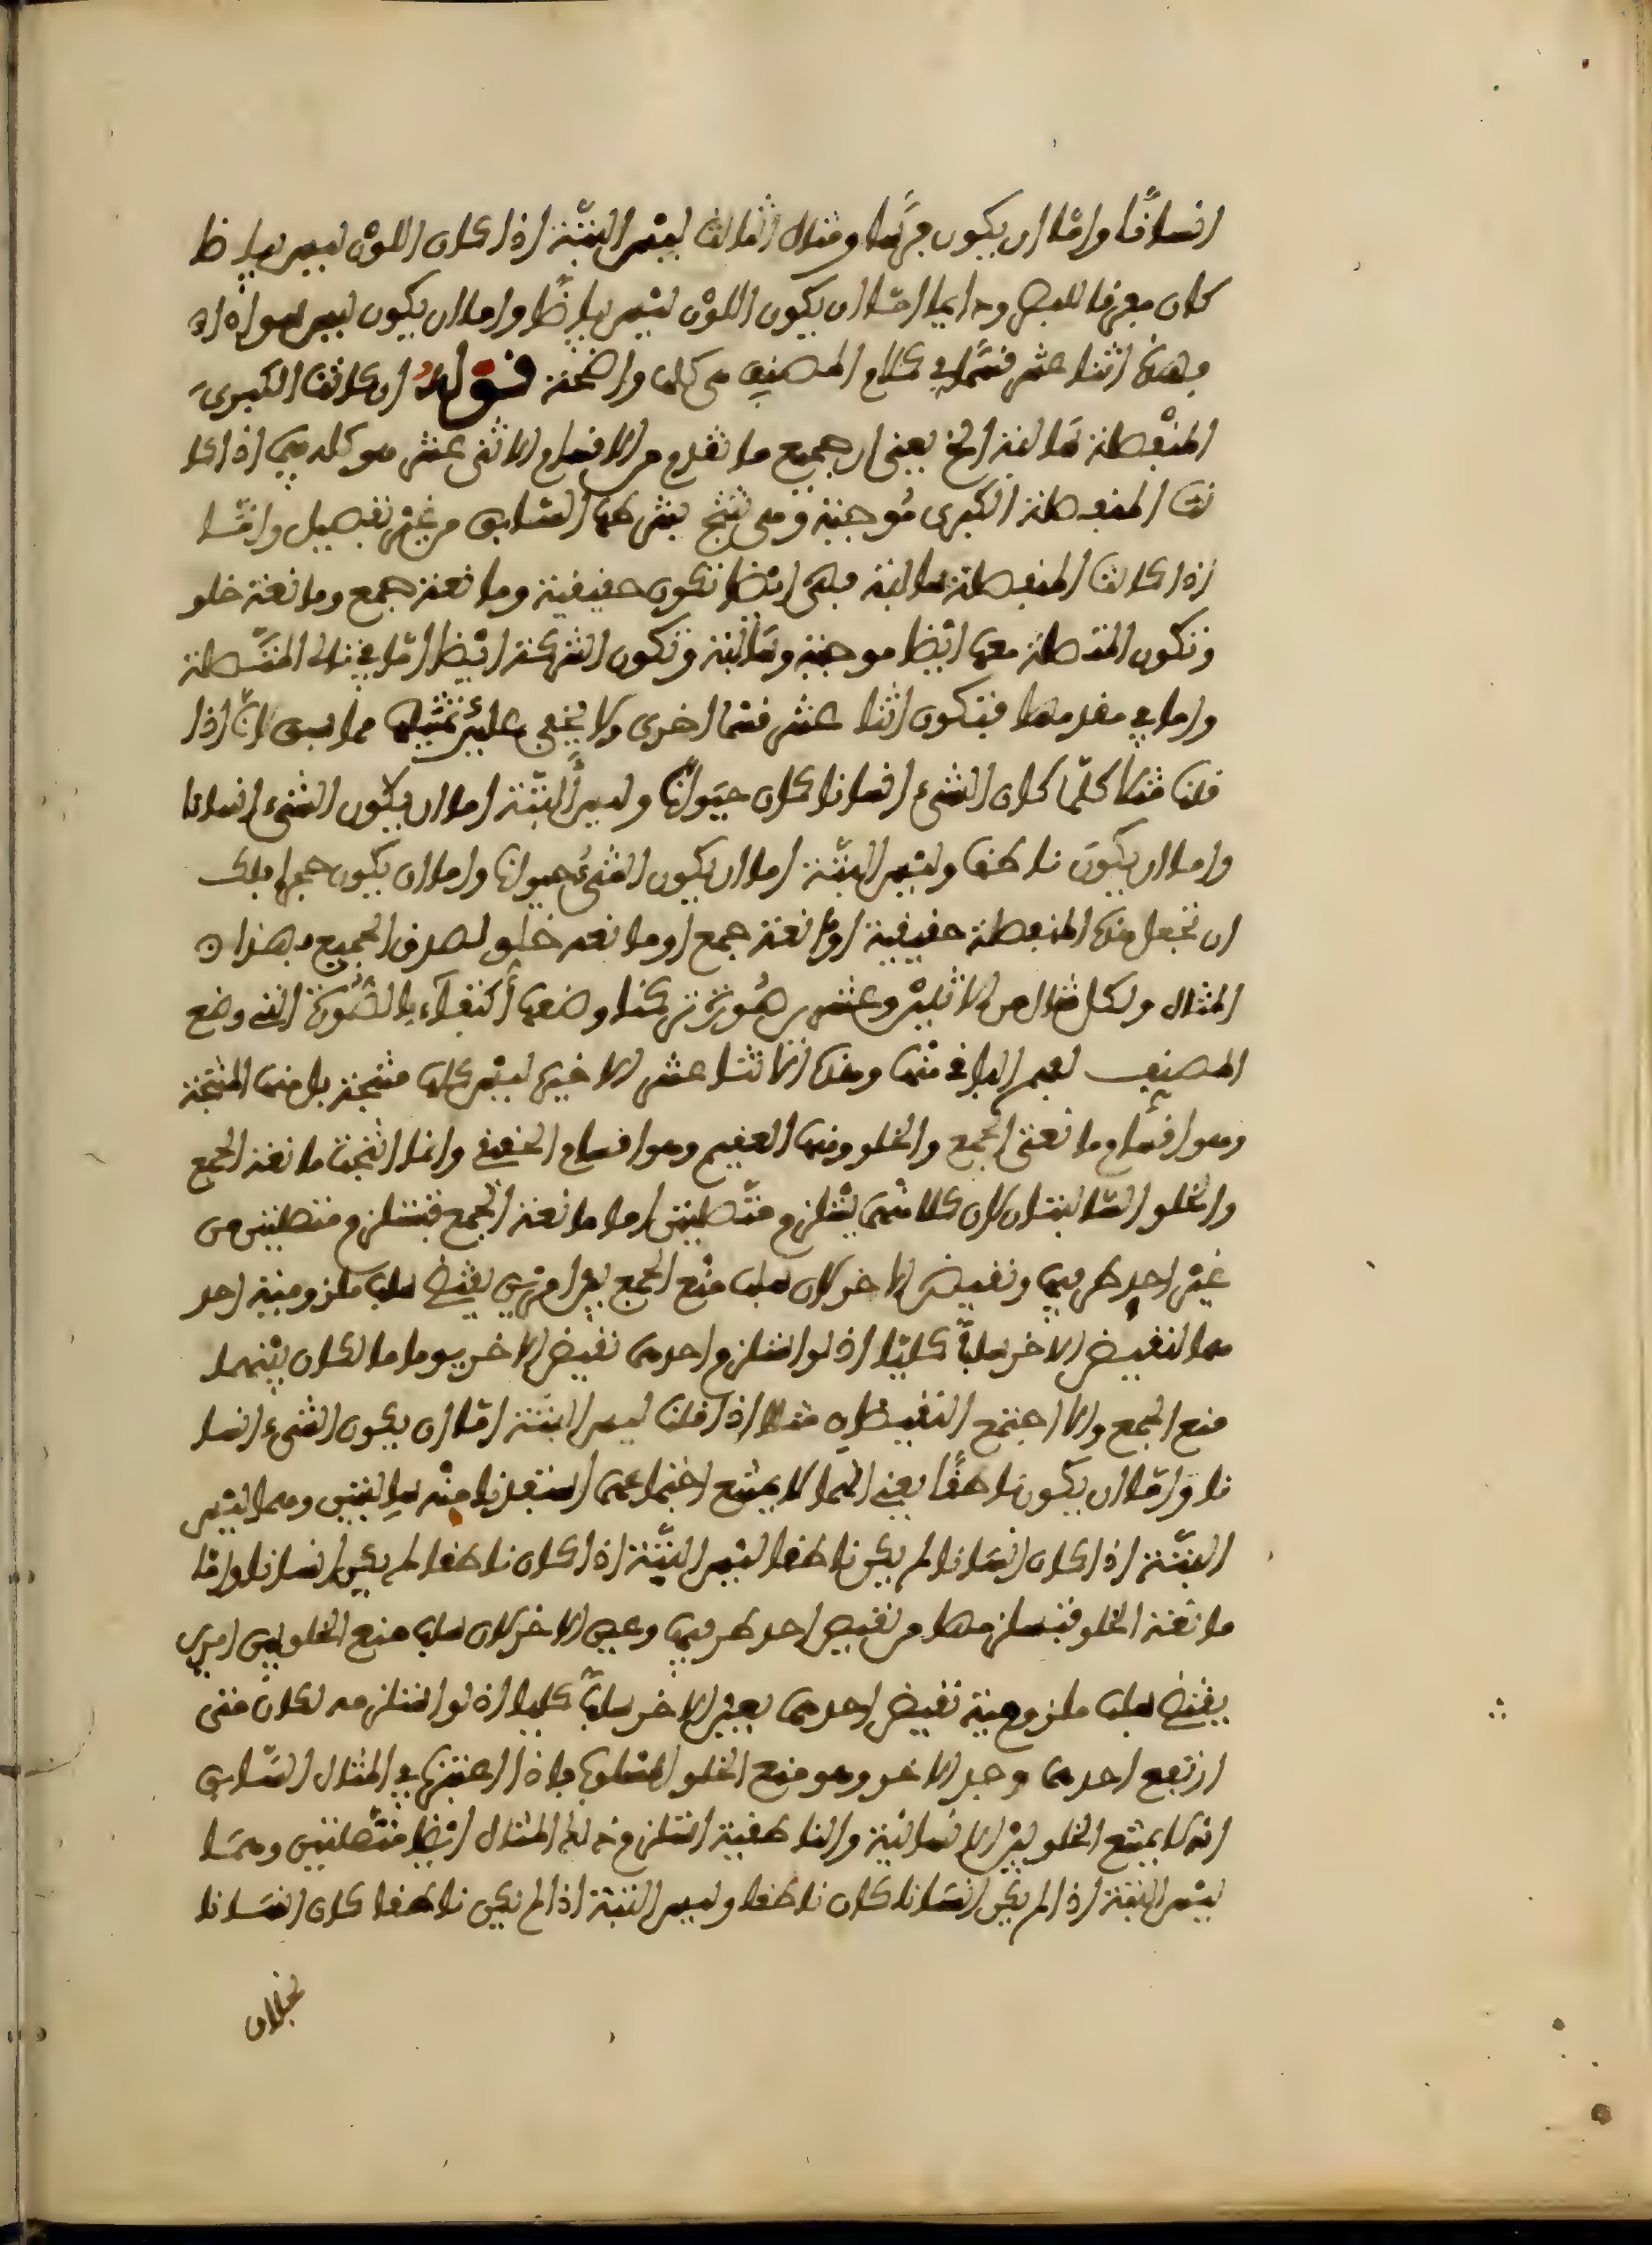 انسانا واما ان يكون فرسا ومثال الثالث ليس البتة اذا كان اللون ليس بياضا
كان مفرقا للبصر ودايما اما ان يكون اللون ليس بياضا واما ان يكون ليس سوادا
فهذه اثنا عشر قسما في كلام المصنف هي كلها واضحة قوله ان كانت الكبرى
المنفصلة سالبة الخ يعني ان جميع ما تقدم من الاقسام الاثنى عشر هو كله فيما اذا كا
نت المنفصلة الكبرى موجبة وهي تنتج بشرطها السابق من غير تفصيل واما
اذا كانت المنفصلة سالبة فهي ايضا تكون حقيقية ومانعة جمع ومانعة خلو
وتكون المتصلة معها ايضا موجبة وسالبة وتكون الشركة ايضا اما في تالي المتصلة
واما في مقدمها فتكون اثنا عشر قسما اخرى ولا يخفى عليك تمثيلها مما سبق لانا اذا
قلنا مثلا كلما كان الشيء انسانا كان حيوانا وليس البتة اما ان يكون الشيء انسانا
واما ان يكون ناطقا وليس البتة اما ان يكون الشيء حيوانا واما ان يكون جسما فلك
ان تجعل هذه المنفصلة حقيقية او مانعة جمع او مانعة خلو لصدق الجميع بهذا
المثال ولكل مثال من الاثنين وعشرين صورة تركنا وضعها اكتفاء بالصورة التي وضع
المصنف لفهم الباقي منها وهذه الاثنا عشر الاخيرة ليس كلها منتجة بل منها المنتجة
وهو اقسام مانعتي الجمع والخلو ومنها العقيم وهو اقسام الحقيقي وانما انتجت مانعة الجمع
والخلو السالبتان لان كلا منهما يستلزم متصلتين اما مانعة الجمع فتستلزم متصلتين من
عين احد طرفيها ونقيض الاخر لان سلب منع الجمع بين امرين يقتضي سلب ملزومية احد
هما لنقيض الاخر سلبا كليا اذ لو استلزم احدهما نقيض الاخر يوما ما لكان بينهما
منع الجمع والا اجتمع النقيضان مثلا اذا قلنا ليس البتة اما ان يكون الشيء انسا
نا واما ان يكون ناطقا يعني انهما لا يمتنع اجتماعهما استفدنا منه سالبتين وهما ليس
البتة اذا كان انسانا لم يكن ناطقا ليس البتة اذا كان ناطقا لم يكن انسانا واما
مانعة الخلو فتستلزمهما من نقيض احد طرفيها وعين الاخر لان سلب منع الخلو بين امرين
يقتضي سلب ملزومية نقيض احدهما لعين الاخر سلبا كليا اذ لو استلزمه لكان متى
ارتفع احدهما وجد الاخر وهو منع الخلو المسلوب فاذا اعتبرنا في المثال السابق
انه لا يمتنع الخلو بين الانسانية والناطقية استلزم ذلك المثال ايضا متصلتين وهما
ليس البتة اذا لم يكن انسانا كان ناطقا وليس البتة اذا لم يكن ناطقا كان انسانا
بخلاف